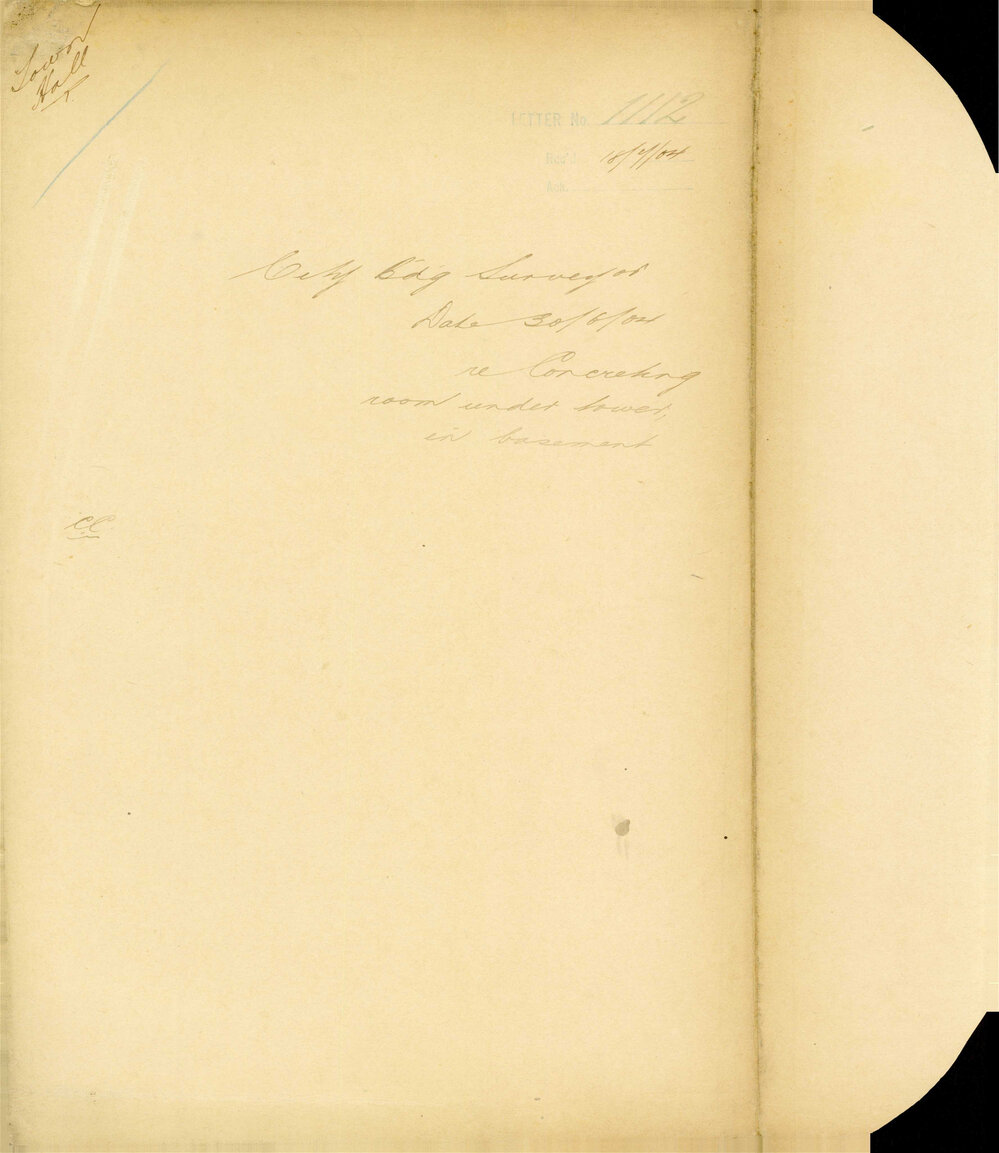 Town
Hall
LETTER No. 1112
Rec'd 18/7/04
Ack.
City Bd'g Surveyor
Date 30/6/04
re Concreting
room under tower,
in basement
CC